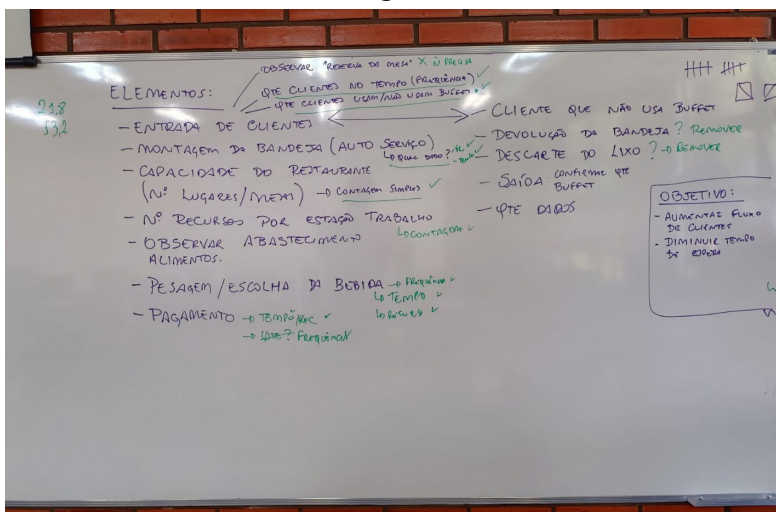 OBSERVAR "RESERVA DE MESA" X Ñ PRECISA
QTE CLIENTES NO TEMPO (FREQUÊNCIA) ✓
QTE CLIENTES USAM/NÃO USAM BUFFET ✓
ELEMENTOS:
21,8
13,2
- ENTRADA DE CLIENTES
- MONTAGEM DA BANDEJA (AUTO SERVIÇO)
↳ QUAL DADO?
- CAPACIDADE DO RESTAURANTE
(Nº LUGARES/MESAS) → CONTAGEM SIMPLES ✓
- Nº RECURSOS POR ESTAÇÃO TRABALHO
↳ CONTAGEM ✓
- OBSERVAR ABASTECIMENTO
ALIMENTOS.
- PESAGEM/ESCOLHA DA BEBIDA → FREQUÊNCIA ✓
↳ TEMPO ✓
↳
- PAGAMENTO → TEMPO/REC ✓
→ QTE? FREQUÊNCIA
- CLIENTE QUE NÃO USA BUFFET
- DEVOLUÇÃO DA BANDEJA? REMOVER
- DESCARTE DO LIXO? → REMOVER
- SAÍDA: CONFIRMAR QTE
BUFFET
- QTE DADOS
OBJETIVO:
- AUMENTAR FLUXO
DE CLIENTES
- DIMINUIR TEMPO
DE ESPERA